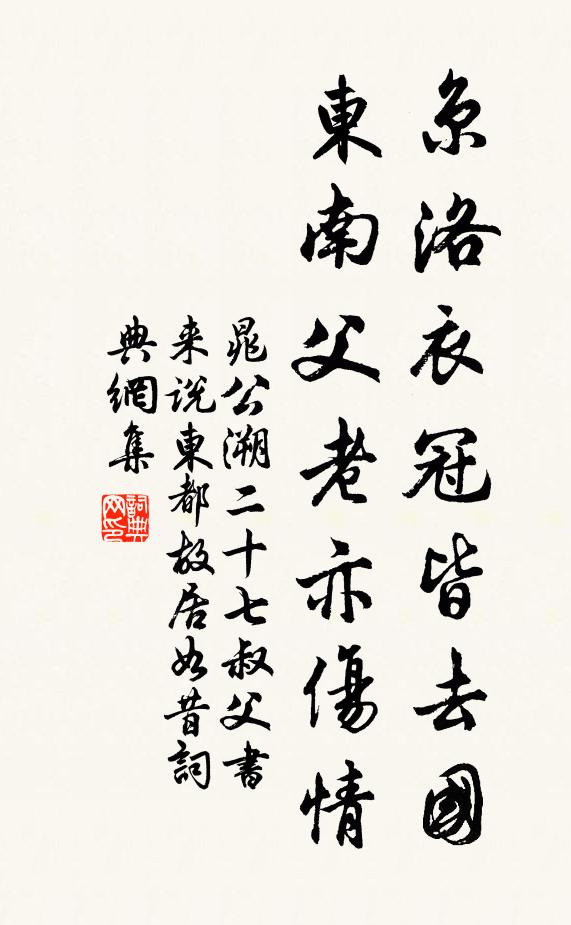 京洛衣冠皆去國
東南父老亦傷情
晁公溯二十七叔父書
来説東都故居如昔詞
典網集
詞典
网印